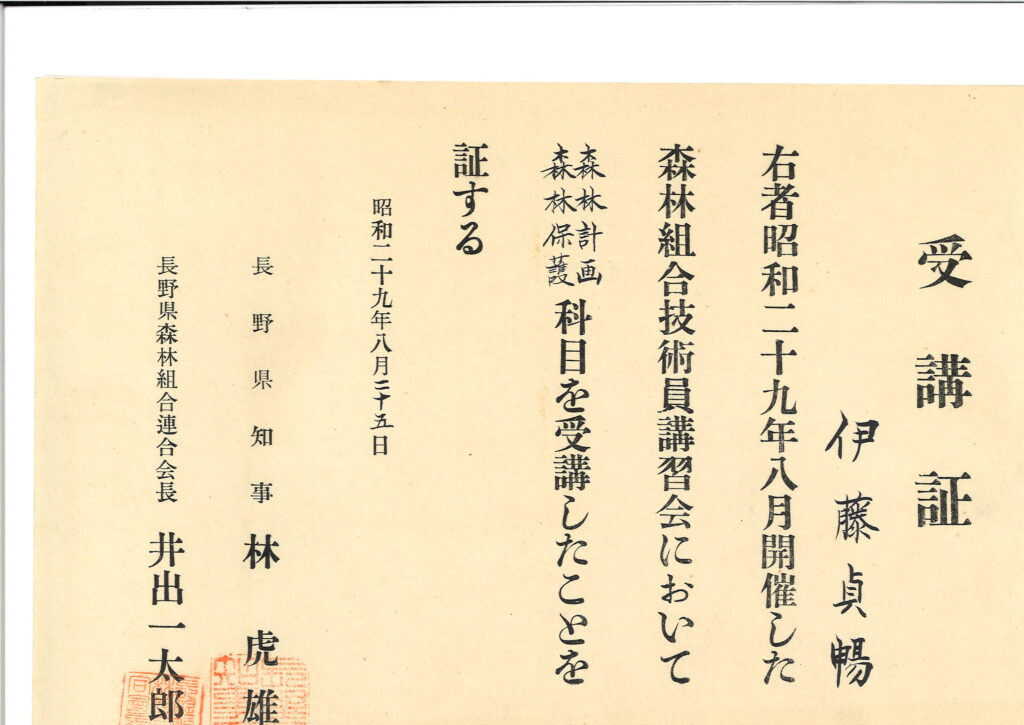 受講証
伊藤貞暢
右者昭和二十九年八月開催した
森林組合技術員講習会において
森林計画
森林保護
科目を受講したことを
証する
昭和二十九年八月二十五日
長野県知事 林虎雄
長野県森林組合連合会長 井出一太郎